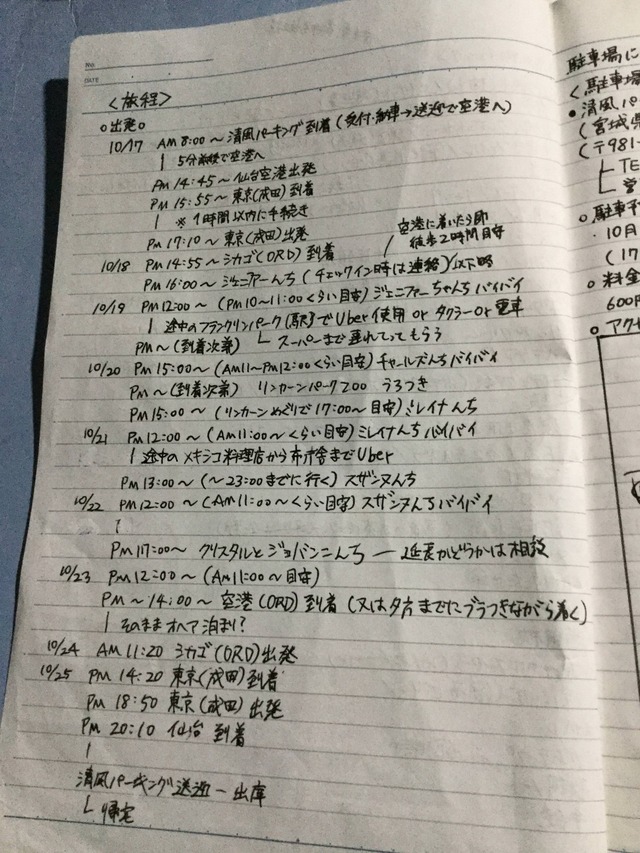 No.
DATE
<旅程>
○出発○
10/17 AM 8:00 ～ 清風パーキング到着 (受付・納車→送迎で空港へ)
| 5分前後で空港へ
AM 14:45～ 仙台空港出発
PM 15:55～ 東京(成田)到着
| ※1時間以内に手続き
PM 17:10～ 東京(成田)出発
空港に着いたら即
徒歩2時間目安
10/18 PM 14:55～ シカゴ(ORD)到着
PM 16:00～ ジェニファーんち (チェックイン時は連絡)/以下略
10/19 PM 12:00～ (PM10～11:00くらい目安) ジェニファーちゃんちバイバイ
| 途中のフランクリンパーク(駅)でUber使用 or タクシー or 電車
PM～(到着次第) └ スーパーまで乗れてってもらう
10/20 PM 15:00～ (AM11～PM12:00くらい目安) チャールズんちバイバイ
PM～(到着次第) リンカーンパークZOO うろつき
PM 15:00～ (リンカーンめぐりで17:00～目安) ミレイナんち
10/21 PM 12:00～ (AM11:00～くらい目安) ミレイナんちバイバイ
| 途中のメキシコ料理店から市庁舎までUber
PM 13:00～ (～23:00までに行く) スザンヌんち
10/22 PM 12:00～ (AM11:00～くらい目安) スザンヌんちバイバイ
PM 17:00～ クリスタルとジョバンニんち ― 延長かどうかは相談
10/23 PM 12:00～ (AM11:00～目安)
PM～14:00～ 空港(ORD)到着 (又は夕方までにブラつきながら着く)
| そのままオヘア泊まり?
10/24 AM 11:20 シカゴ(ORD)出発
10/25 PM 14:20 東京(成田)到着
PM 18:50 東京(成田)出発
PM 20:10 仙台 到着
|
清風パーキング送迎 ― 出庫
└ 帰宅
駐車場に
<駐車場
●清風パ
(宮城県
(〒981-
TE
営
○駐車予
10月
(17
○料金
600円
○アクセ